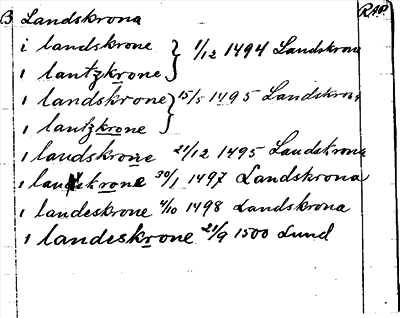 B Landskrona RAP.
i landskrone } 1/12 1494 Landskrona
i lantzkrone
i landskrone } 15/5 1495 Landskrona
i lantzkrone
i landskrone 21/12 1495 Landskrona
i landskrone 30/1 1497 Landskrona
i landeskrone 4/10 1498 Landskrona
i landeskrone 21/9 1500 Lund